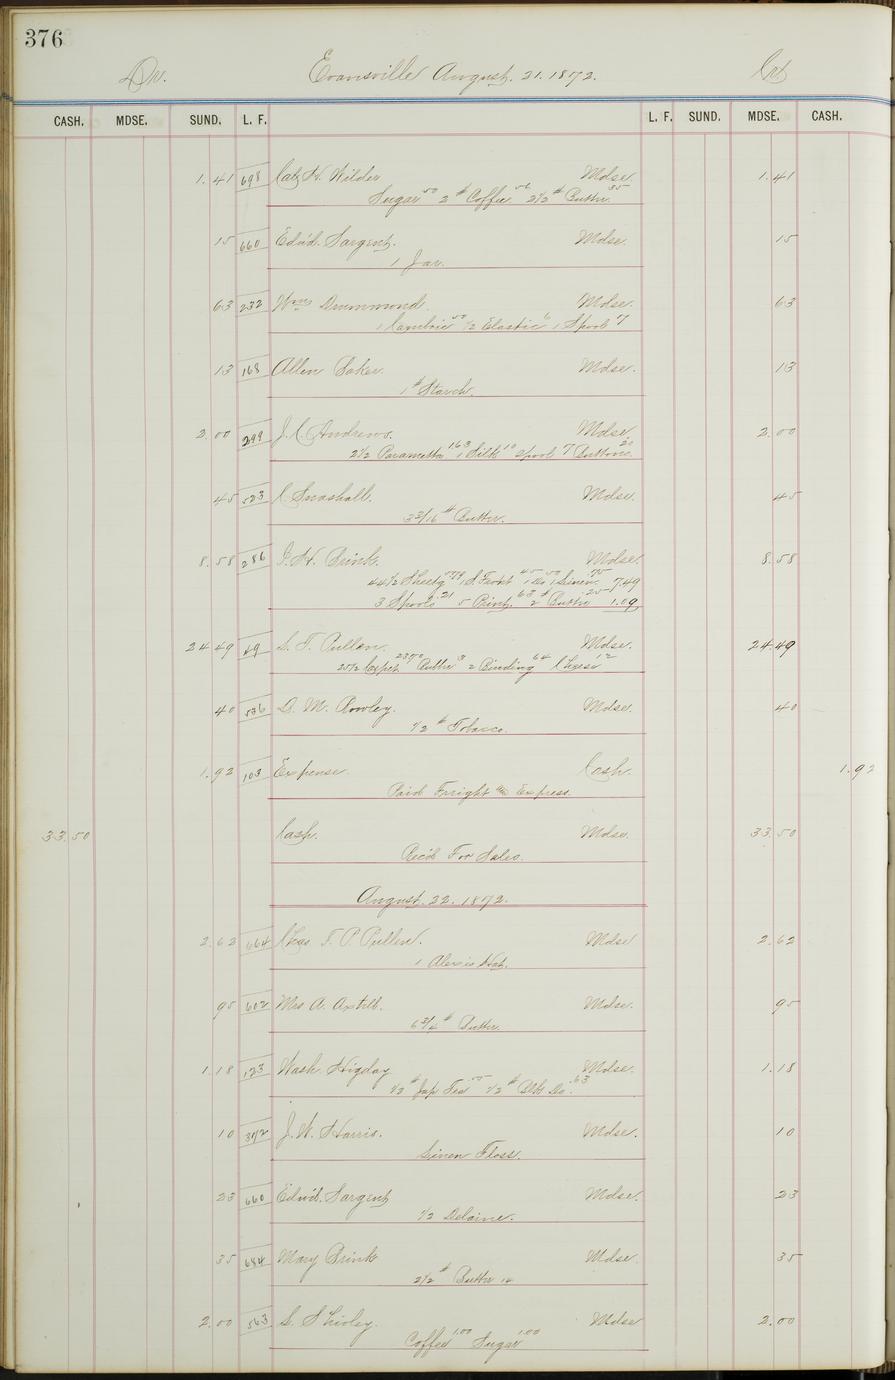 376
Dr. Evansville August. 21. 1872. Crt
CASH. MDSE. SUND. L. F. L. F. SUND. MDSE. CASH.
1.41 698 H. Wilder Mdse. 1.41
Sugar 50 2 # Coffee 56 2 1/2 # Butter 35
15 660 Edw'd. Sargent. Mdse. 15
1 Jar.
63 232 Wm Drummond. Mdse. 63
1 Cambric 50 1/2 Elastic 6 1 Spool 7
13 168 Allen Baker. Mdse. 13
1 # Starch.
2.00 299 J. C. Andrews. Mdse. 2.00
2 1/2 Parametta 1.63 1 Silk 10 Spool 7 Buttons. 20
45 523 C. Snashall. Mdse. 45
3 3/16 # Butter.
8.58 286 H. Brink. Mdse. 8.58
44 1/2 Sheetg 1 S. Front 45 1 Do 50 1 Linen 75 7.49
3 Spools 21 5 Print 63 2 # Butter 25 1.09
24.49 49 S. T. Pullen. Mdse. 24.49
25 1/2 Carpet 2 Binding 64 Cheese 12
40 536 D. M. Rowley. Mdse. 40
1/2 # Tobacco.
1.92 103 Expense. Cash. 1.92
Paid Freight and Express.
33.50 Cash. Mdse. 33.50
Rec'd For Sales.
August. 22. 1872.
2.62 664 Chas T. P. Pullen. Mdse 2.62
1 Alexis Hat.
95 602 Mrs A. Axtell. Mdse. 95
6 3/4 # Butter.
1.18 123 Wash Higday Mdse. 1.18
1/2 # Jap Tea 55 1/2 # Blk Do. 63
10 312 J. W. Harris. Mdse. 10
Linen Floss.
23 660 Edw'd. Sargent Mdse. 23
1/2 Delaine.
35 684 Mary Brink Mdse. 35
2 1/2 # Butter 14
2.00 563 S. Shirley. Mdse 2.00
Coffee 1.00 Sugar 1.00